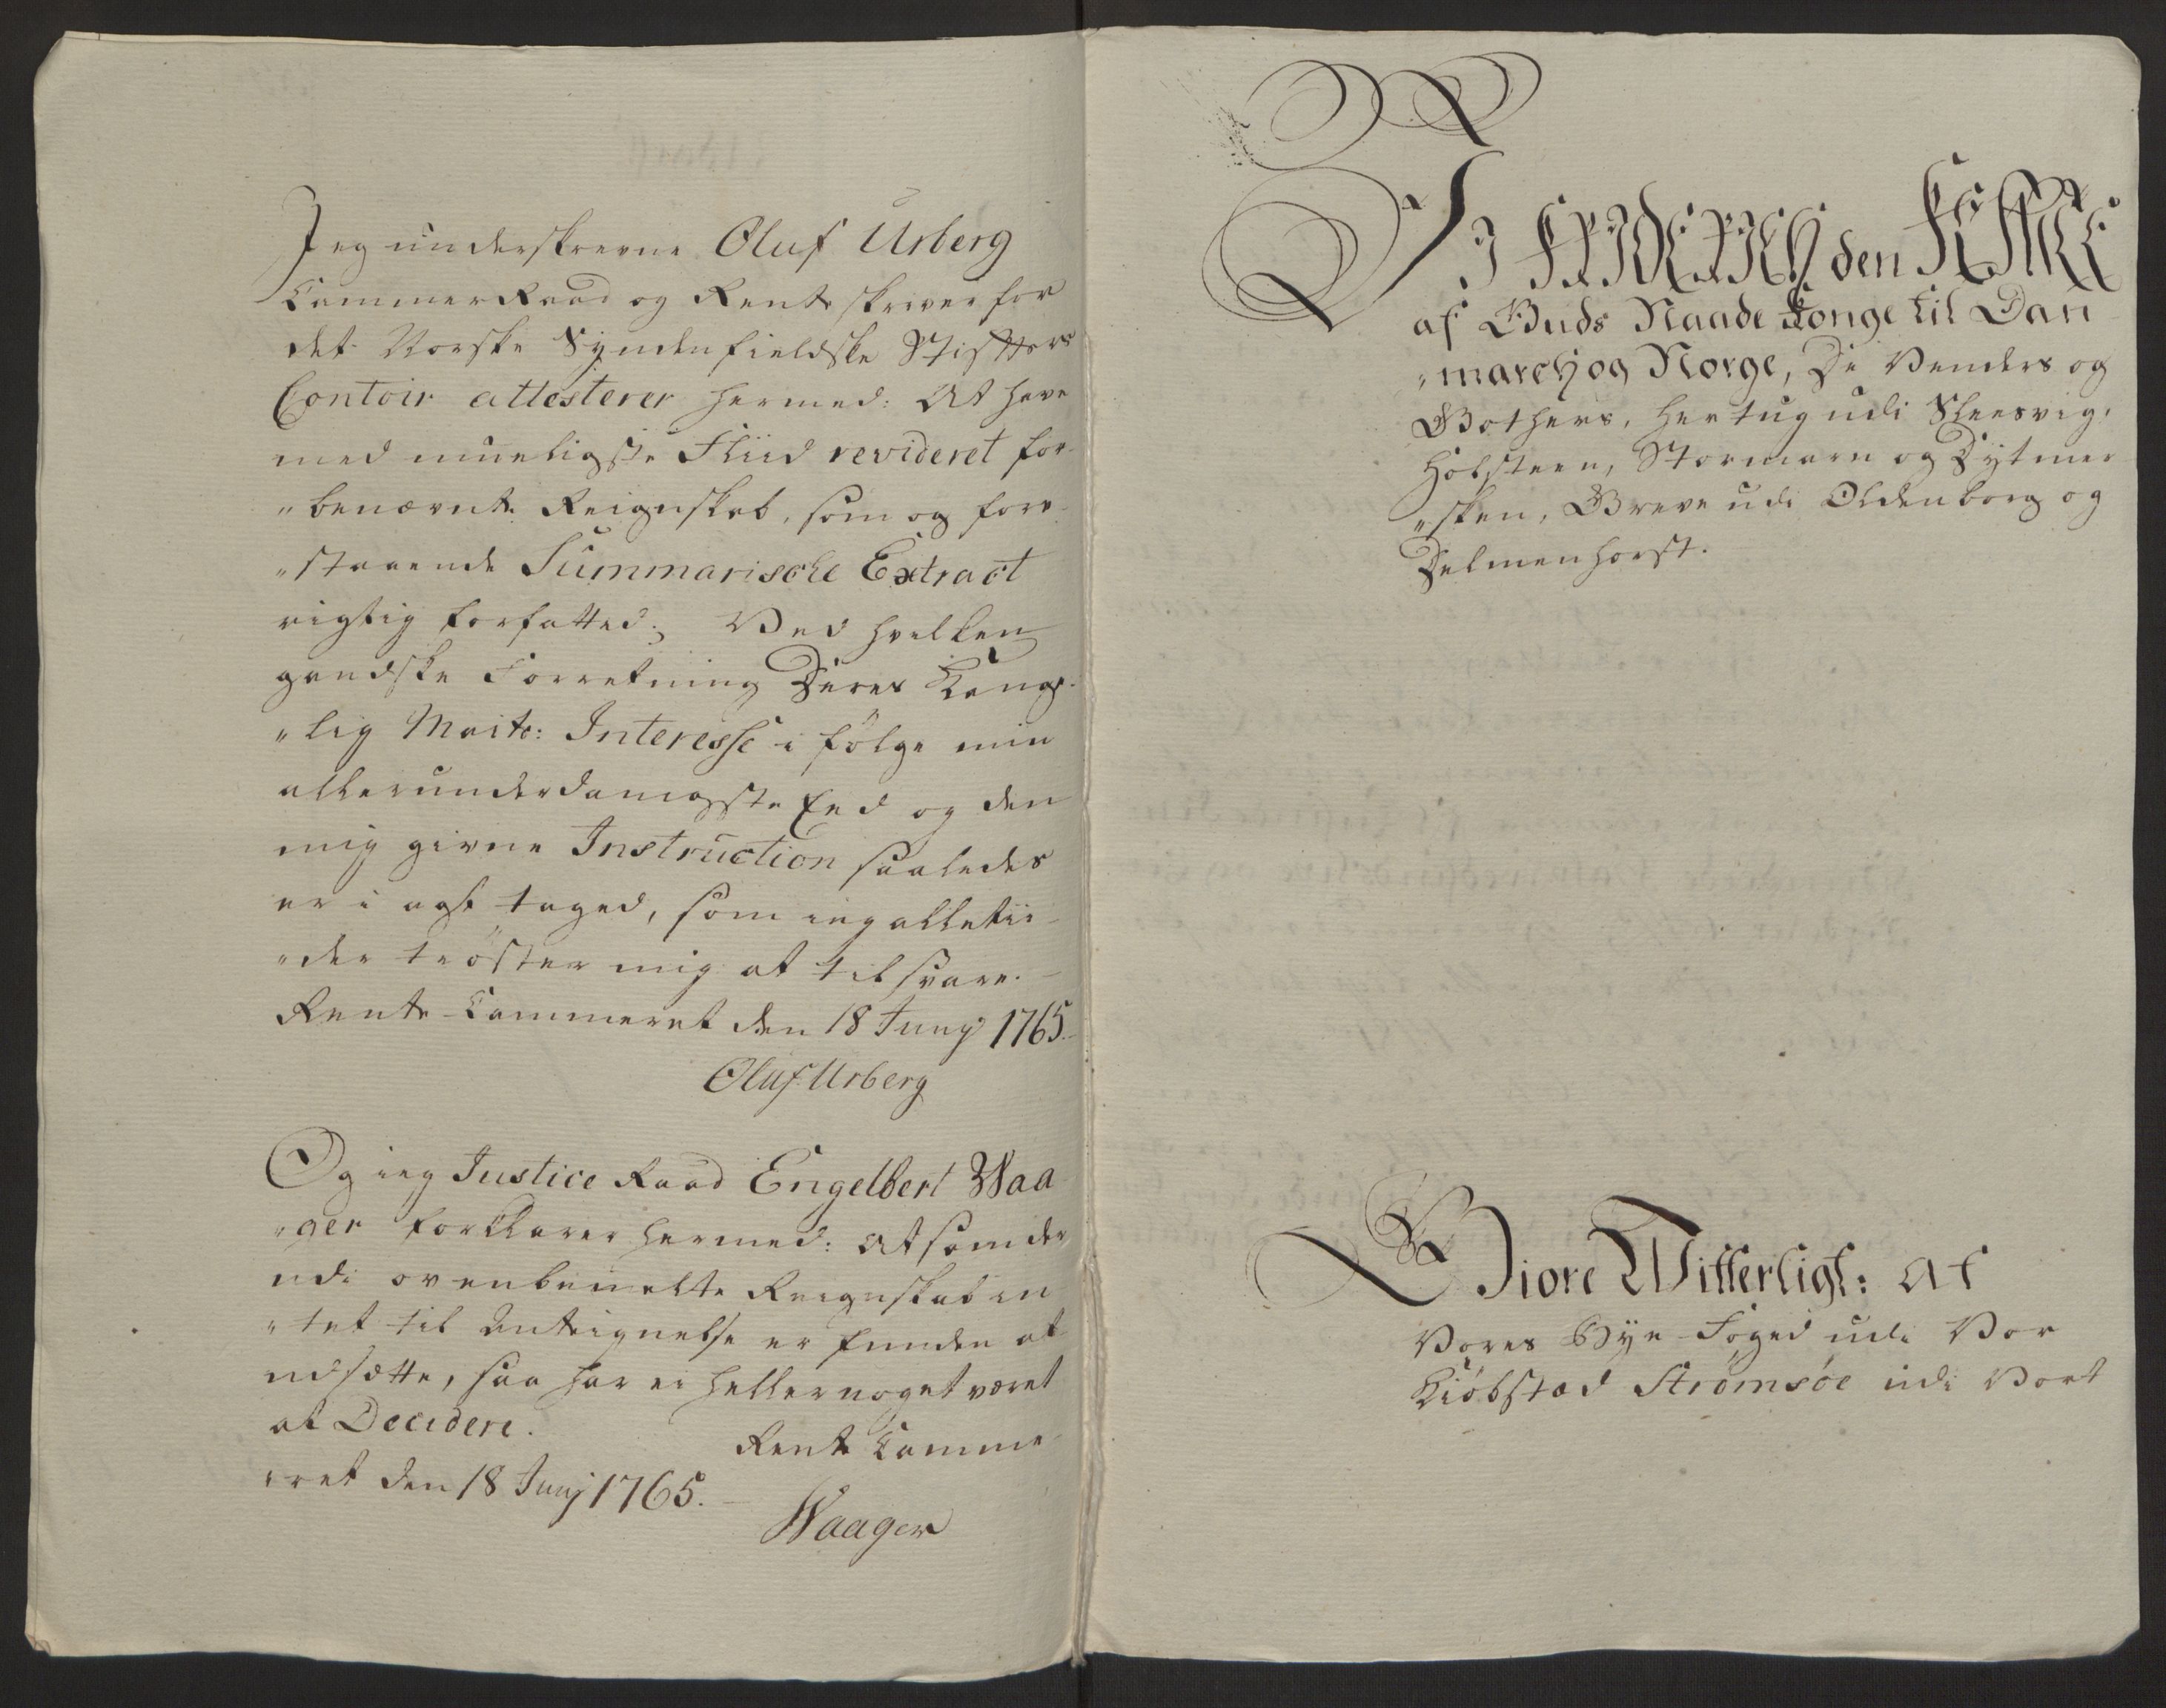 Jeg underskrevne Oluf Urberg
Cammer Raad og Rente skriver for
det Norske Syndenfieldske Stifters
Contoir attesterer hermed: At have
med mueligste Fliid revideret for-
"benævnte Reignskab, som og for-
"staaende Summariske Extract
rigtig forfatted; Ved hvilken
gandske Forretning Deres Konge-
"lig Maits: Interesse i følge min
allerunderdanigste Eed og den
mig givne Instruction saaledes
er i agt taged, som ieg alletii-
"der trøster mig at tilsvare.
Rente-Cammeret den 18 Junij 1765.
Oluf Urberg
Og ieg Justice Raad Engelbert Waa
"ger forklarer hermed: At som der
udi ovenbemelte Reignskab in
"tet til Anteignelse er funden at
udsætte, saa har ei heller noget været
at Decidere.
Rente Camme-
"ret den 18 Junj 1765.
Waager
VI FRIDERICH den FEMTE
af Guds Naade Konge til Dan
"march og Norge, De Venders og
Gothers, Hertug udi Sleesvig,
Holsteen, Stormarn og Dytmer
"sken, Greve udi Oldenborg og
Delmenhorst.
Giøre Witterligt: At
Vores Bye-Foged udi Vor
Kiøbstæd Strømsøe udi Vort